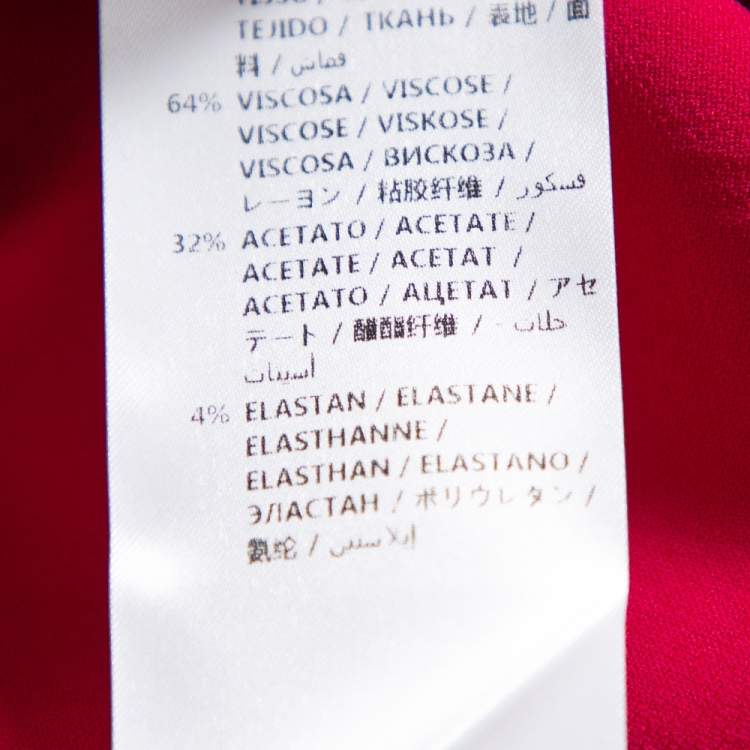 TEJIDO / ТКАНЬ / 表地 / 面
料 / قماش
64% VISCOSA / VISCOSE /
VISCOSE / VISKOSE /
VISCOSA / ВИСКОЗА /
レーヨン / 粘胶纤维 / فسكور
32% ACETATO / ACETATE /
ACETATE / ACETAT /
ACETATO / АЦЕТАТ / アセ
テート / 醋酯纤维 /
4% ELASTAN / ELASTANE /
ELASTHANNE /
ELASTHAN / ELASTANO /
ЭЛАСТАН / ポリウレタン /
氨纶 /